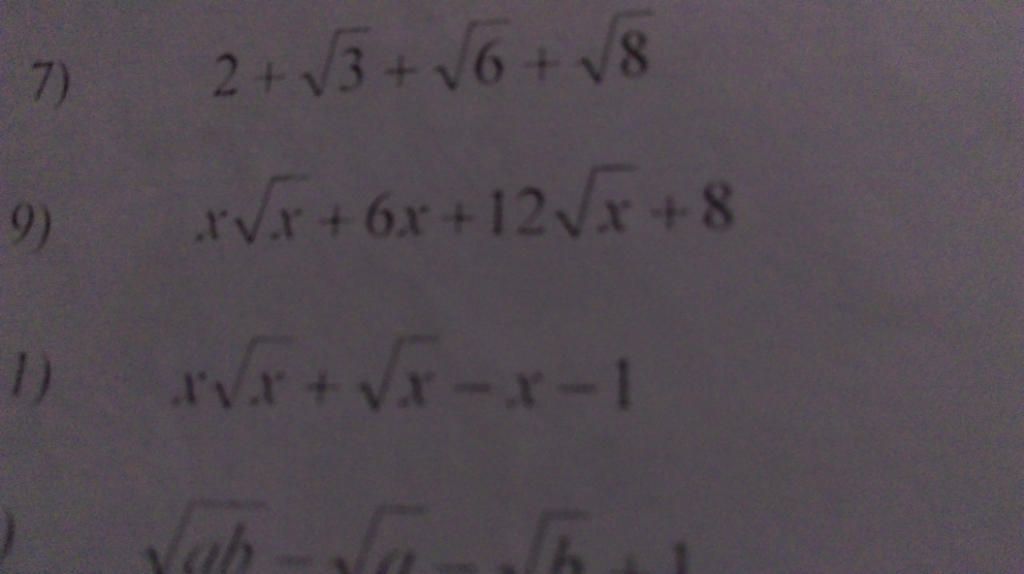 7) 2 + √3 + √6 + √8
9) x√x + 6x + 12√x + 8
1) x√x + √x − x − 1
) √ab − √a − √b + 1